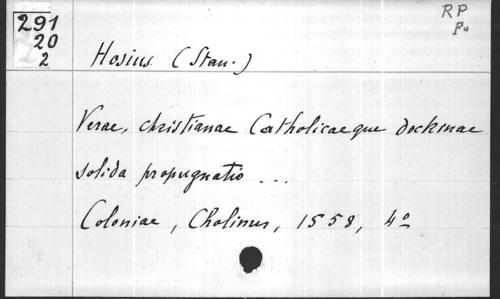 291
20
2
RP
F.
Hosius (Stan.)
Verae, christianae Catholicaeque doctrinae
solida propugnatio ...
Coloniae, Cholinus, 1558, 4º